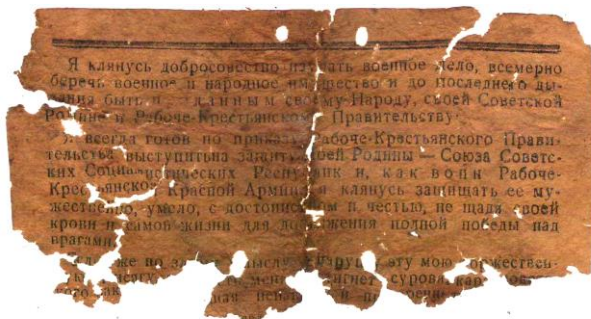 Я клянусь добросовестно изучать военное дело, всемерно
беречь военное и народное имущество и до последнего ды-
хания быть преданным своему Народу, своей Советской
Родине и Рабоче-Крестьянскому Правительству
Я всегда готов по приказу Рабоче-Крестьянского Прави-
тельства выступить на защиту моей Родины — Союза Советс-
ких Социалистических Республик и, как воин Рабоче-
Крестьянской Красной Армии, я клянусь защищать ее му-
жественно, умело, с достоинством и честью, не щадя своей
крови и самой жизни для достижения полной победы над
врагами
же по эту мою
сурова